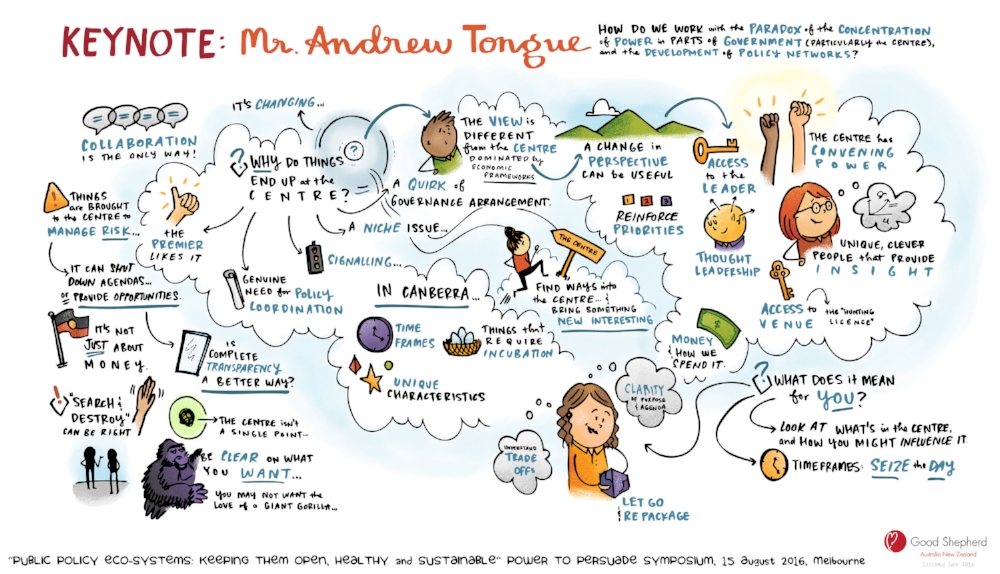 KEYNOTE: Mr. Andrew Tongue
HOW DO WE WORK with the PARADOX of the CONCENTRATION
of POWER in PARTS of GOVERNMENT (PARTICULARLY the CENTRE),
and the DEVELOPMENT of POLICY NETWORKS?
COLLABORATION
IS THE ONLY WAY!
IT'S CHANGING...
?
? WHY DO THINGS
END UP at the
CENTRE?
THE VIEW is
DIFFERENT
from the CENTRE
DOMINATED by
ECONOMIC
FRAMEWORKS
A CHANGE in
PERSPECTIVE
CAN be USEFUL
ACCESS
to the
LEADER
THE CENTRE has
CONVENING
POWER
! THINGS
are BROUGHT
to the CENTRE to
MANAGE RISK...
the
PREMIER
LIKES IT
A QUIRK of
GOVERNANCE ARRANGEMENT.
A NICHE ISSUE...
SIGNALLING...
GENUINE
NEED for POLICY
COORDINATION
1 2 3
REINFORCE
PRIORITIES
THOUGHT
LEADERSHIP
UNIQUE, CLEVER
PEOPLE that PROVIDE
INSIGHT
IT CAN SHUT
DOWN AGENDAS...
or PROVIDE OPPORTUNITIES.
THE CENTRE
FIND WAYS into
the CENTRE... &
BRING SOMETHING
NEW INTERESTING
ACCESS to
VENUE
the "HUNTING
LICENCE"
IN CANBERRA...
TIME
FRAMES
THINGS that
REQUIRE
INCUBATION
UNIQUE
CHARACTERISTICS
MONEY
& HOW WE
SPEND IT.
IT'S NOT
JUST ABOUT
MONEY.
IS
COMPLETE
TRANSPARENCY
A BETTER WAY?
! "SEARCH &
DESTROY"
CAN BE RIGHT
THE CENTRE ISN'T
A SINGLE POINT...
BE CLEAR ON WHAT
YOU WANT...
YOU MAY NOT WANT the
LOVE of a GIANT GORILLA...
CLARITY
OF PURPOSE
& AGENDA
UNDERSTAND
TRADE
OFFS
LET GO
& REPACKAGE
? WHAT DOES it MEAN
for YOU?
LOOK AT WHAT'S in the CENTRE,
and HOW YOU MIGHT INFLUENCE IT.
TIMEFRAMES: SEIZE the DAY
"PUBLIC POLICY ECO-SYSTEMS: KEEPING THEM OPEN, HEALTHY and SUSTAINABLE" POWER TO PERSUADE SYMPOSIUM, 15 AUGUST 2016, Melbourne
Good Shepherd
Australia New Zealand